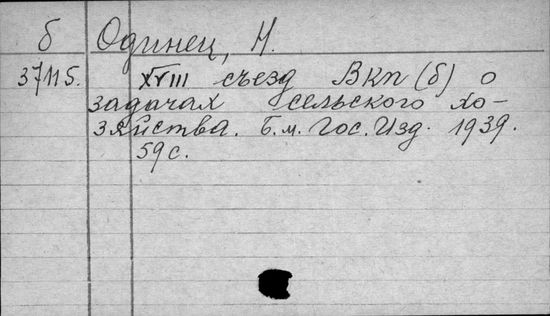 б Одинец, Н.
37115. XVIII съезд ВКП(б) о
задачах сельского хо-
зяйства. Б.м. Гос.Изд. 1939.
59с.